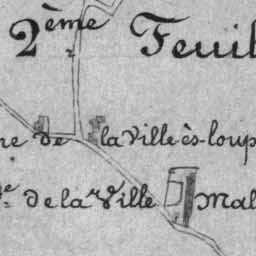 2ème Feuil
ne de la ville-ès-loup
de la Ville Mal